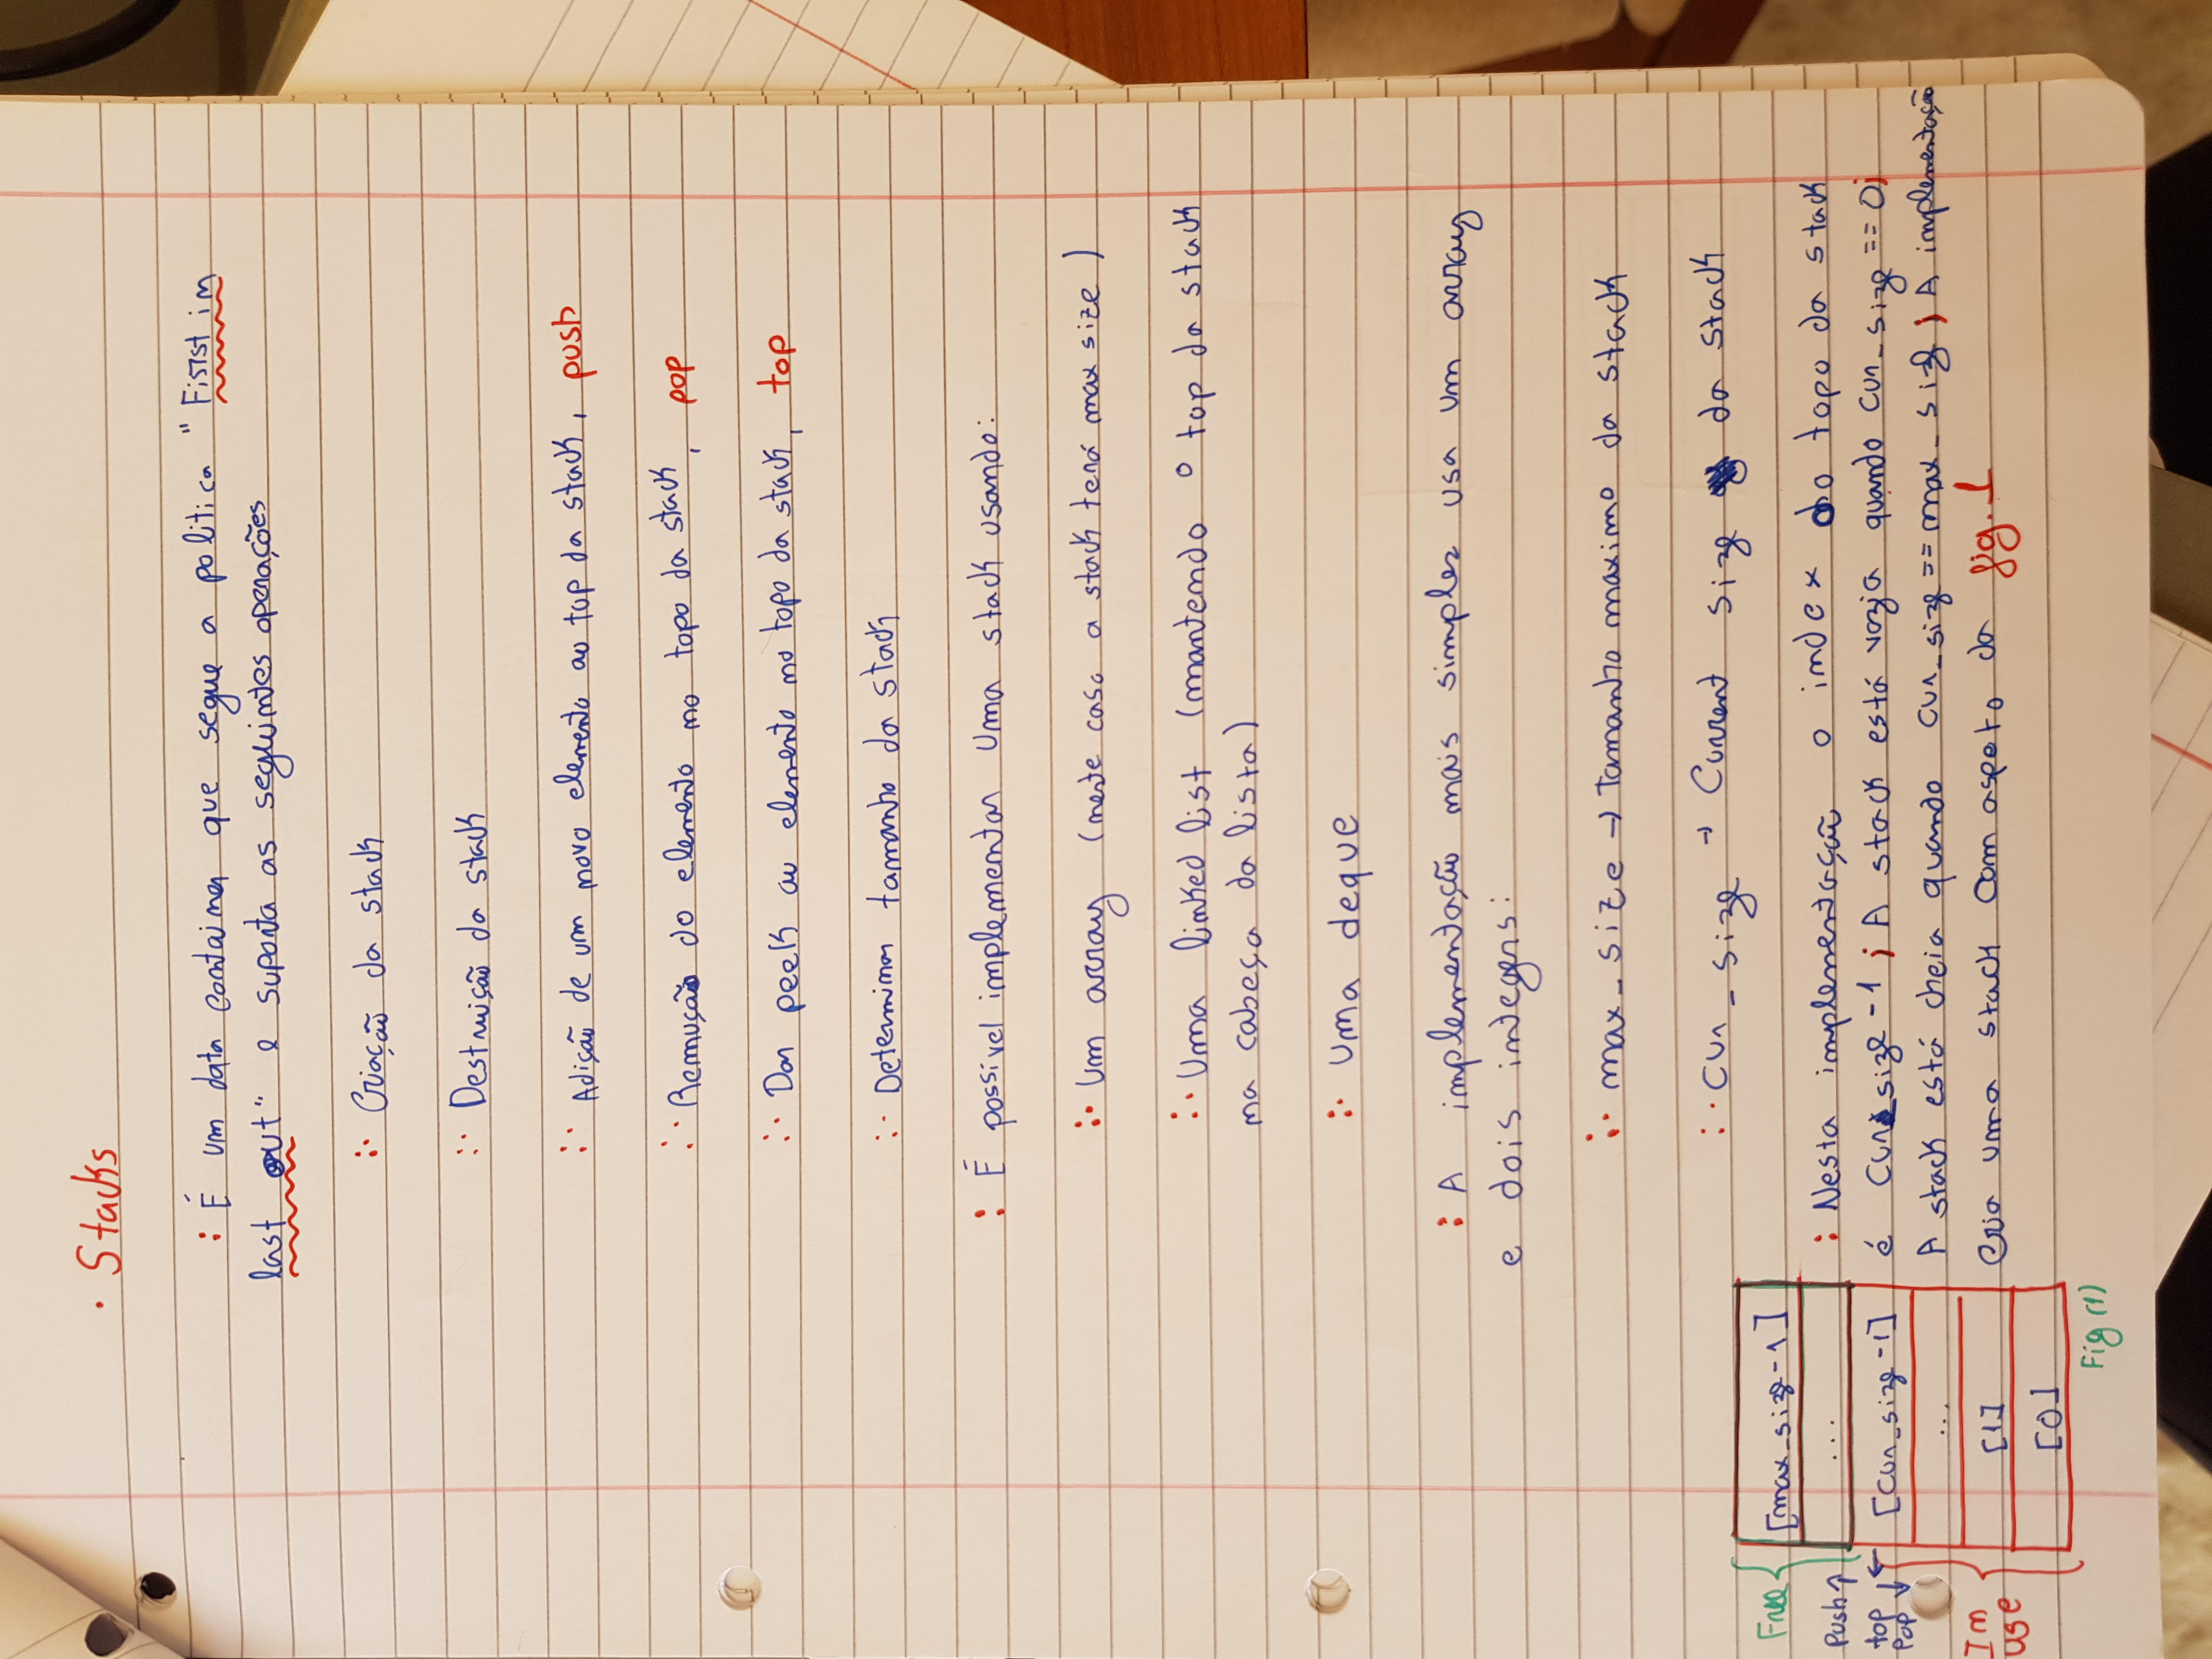 · Stacks
: É um data container que segue a politica "First in
last out" e suporta as seguintes operações
∴ Criação da stack
∴ Destruição da stack
∴ Adição de um novo elemento ao top da stack, push
∴ Remução do elemento no topo da stack, pop
∴ Dar peek ao elemento no topo da stack, top
∴ Determinar tamanho da stack
: É possivel implementar uma stack usando:
∴ Um array (neste caso a stack terá max size)
∴ Uma linked list (mantendo o top da stack
na cabeça da lista)
∴ Uma deque
: A implementação mais simples usa um array
e dois integers:
∴ max_size → Tamanho maximo da stack
∴ cur_size → Current size da stack
: Nesta implementação o index do topo da stack
é cur_size-1; A stack está vazia quando cur_size == 0;
A stack está cheia quando cur_size == max_size; A implementação
cria uma stack com aspeto da fig. 1
Free
[max_size-1]
...
Push ↑
top ←
Pop ↓
[cur_size-1]
...
In
use
[1]
[0]
Fig (1)